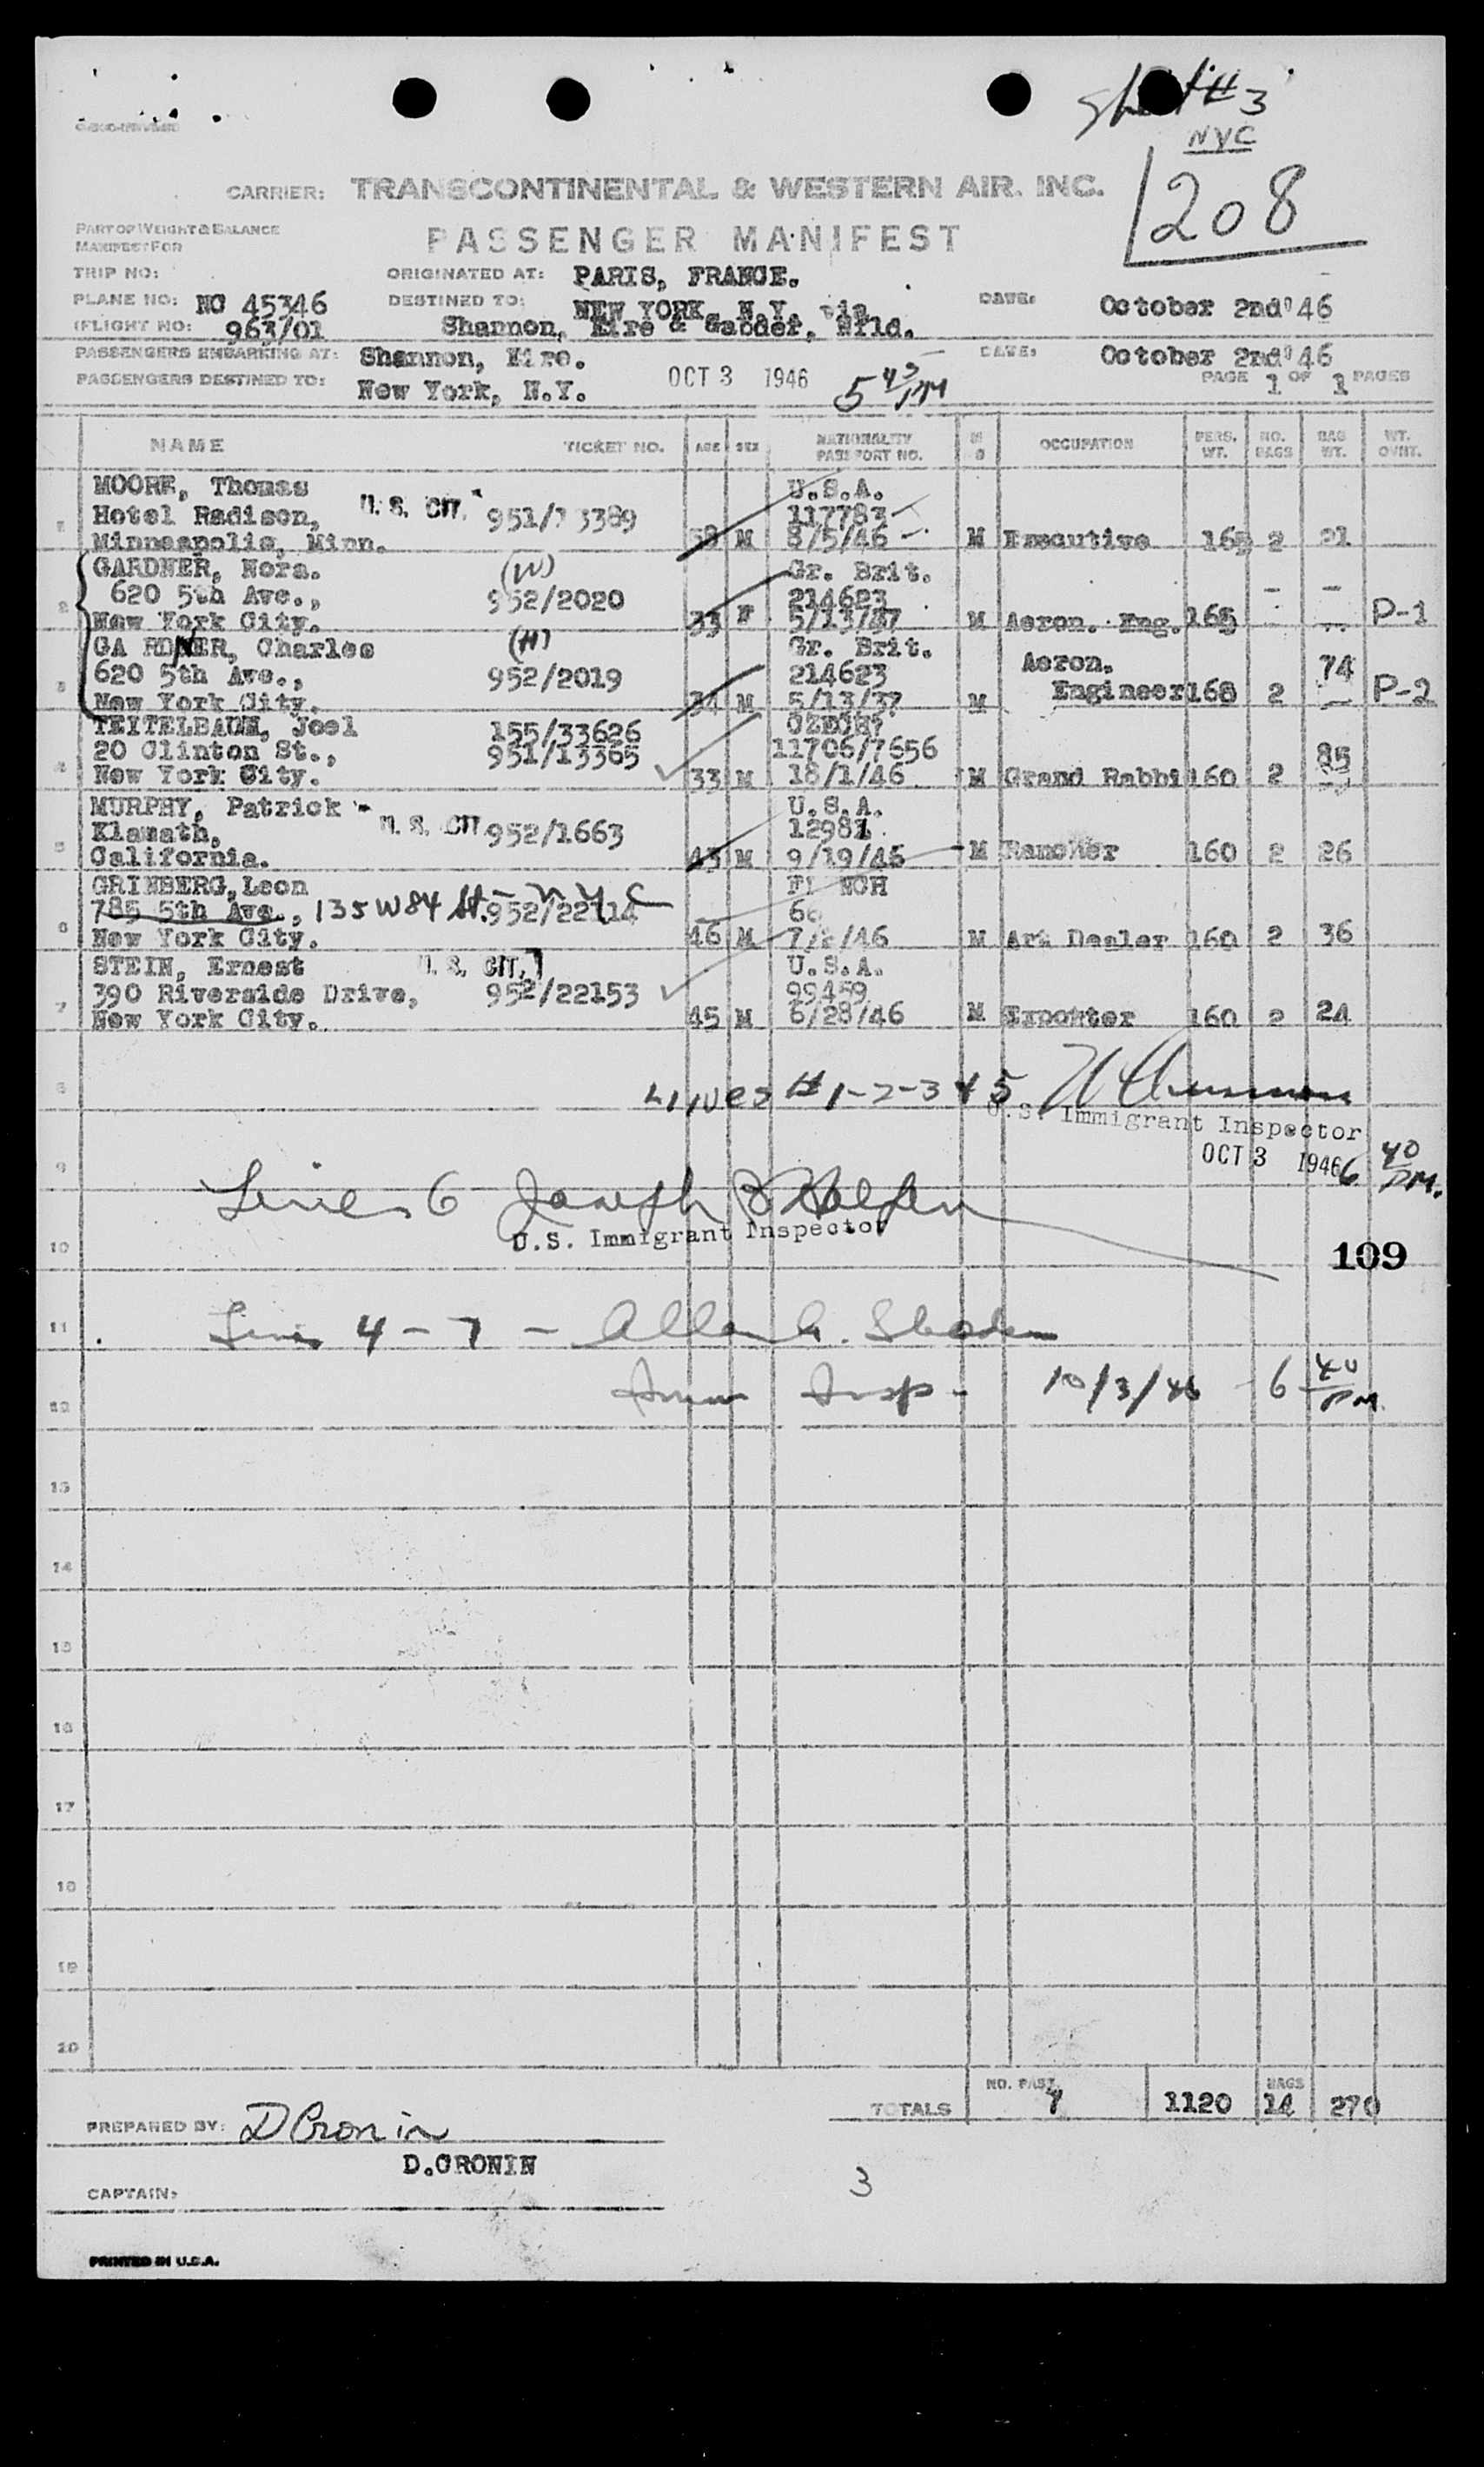 Sheet #3
NYC
208
CARRIER: TRANSCONTINENTAL & WESTERN AIR. INC.
PART OF WEIGHT & BALANCE
MANIFEST FOR
PASSENGER MANIFEST
TRIP NO: ORIGINATED AT: PARIS, FRANCE.
PLANE NO: NC 45346 DESTINED TO: NEW YORK, N.Y. via DATE: October 2nd'46
(FLIGHT NO: 963/01 Shannon, Eire & Gander, Nfld.
PASSENGERS EMBARKING AT: Shannon, Eire. DATE: October 2nd'46
PASSENGERS DESTINED TO: New York, N.Y. OCT 3 1946 5 45 PM PAGE 1 OF 1 PAGES
NAME TICKET NO. AGE SEX NATIONALITY PASSPORT NO. M S OCCUPATION PERS. WT. NO. BAGS BAG WT. WT. OVHT.
MOORE, Thomas U.S.A.
Hotel Radison, U. S. CIT. 951/13389 117783
1 Minneapolis, Minn. 58 M 8/5/46 M Executive 165 2 21
GARDNER, Nora. (W) Gr. Brit.
620 5th Ave., 952/2020 214623 - -
2 New York City. 33 F 5/13/37 M Aeron. Eng. 165 P-1
GARDNER, Charles (H) Gr. Brit. Aeron.
620 5th Ave., 952/2019 214623 74
3 New York City. 34 M 5/13/37 M Engineer 168 2 P-2
TEITELBAUM, Joel 155/33626
20 Clinton St., 951/13365 11706/7656 85
4 New York City. 33 M 18/1/46 M Grand Rabbi 160 2
MURPHY, Patrick U.S.A.
Klamath, U. S. CIT. 952/1663 12981
5 California. 43 M 9/19/45 M Rancher 160 2 26
GRINBERG, Leon
785 5th Ave., 135 W 84 St. - N Y C 952/22114
6 New York City. 46 M M Art Dealer 160 2 36
STEIN, Ernest U. S. CIT. U.S.A.
390 Riverside Drive, 952/22153 99459
7 New York City. 45 M 6/28/46 M Exporter 160 2 24
8 Lines #1-2-3 & 5
U.S. Immigrant Inspector
OCT 3 1946 6 40 PM.
9 Line 6 Joseph
U.S. Immigrant Inspector
10 109
11 Lines 4 - 7 -
12 Imm Insp - 10/3/46 - 6 40 PM
13
14
15
16
17
18
19
20
TOTALS NO. PASS. 7 1120 BAGS 14 270
PREPARED BY: D Cronin
D.CRONIN
3
CAPTAIN:
PRINTED IN U.S.A.